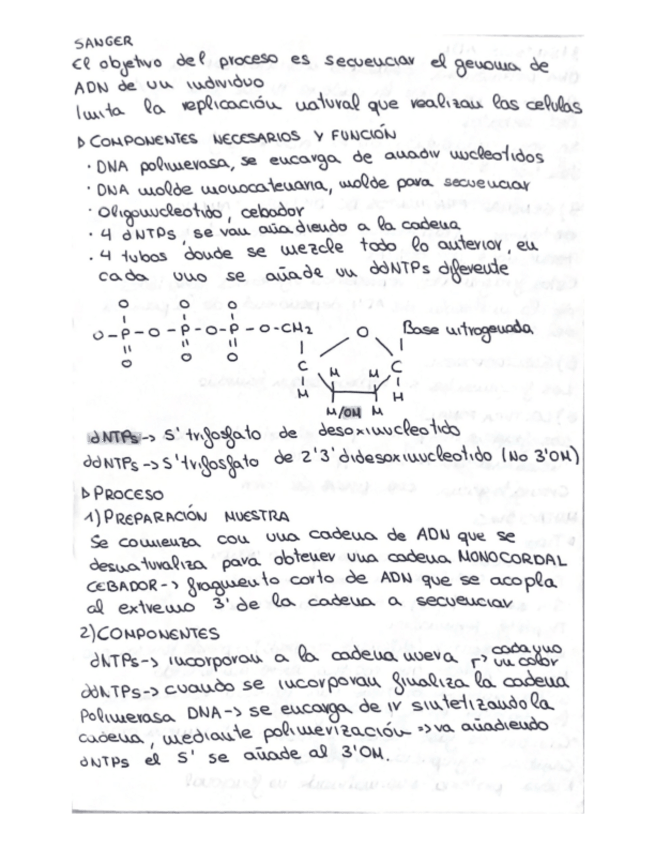 SANGER
El objetivo del proceso es secuenciar el genoma de
ADN de un individuo
Imita la replicación natural que realizan las celulas
▷ COMPONENTES NECESARIOS Y FUNCIÓN
· DNA polimerasa, se encarga de anadir nucleotidos
· DNA molde monocatenaria, molde para secuenciar
· Oligonucleotido, cebador
· 4 dNTPs, se van añadiendo a la cadena
· 4 tubos donde se mezcle todo lo anterior, en
cada uno se añade un ddNTPs diferente
O O O
O-P-O-P-O-P-O-CH2 O Base nitrogenada
O O O
C H H C
H H
H/OH H
dNTPs -> 5' trifosfato de desoxinucleotido
ddNTPs -> 5' trifosfato de 2'3' didesoxinucleotido (No 3'OH)
▷ PROCESO
1) PREPARACIÓN MUESTRA
Se comienza con una cadena de ADN que se
desnaturaliza para obtener una cadena MONOCORDAL
CEBADOR -> fragmento corto de ADN que se acopla
al extremo 3' de la cadena a secuenciar
2) COMPONENTES
dNTPs -> incorporan a la cadena nueva
cada uno
un color
ddNTPs -> cuando se incorporan finaliza la cadena
Polimerasa DNA -> se encarga de ir sintetizando la
cadena, mediante polimerización => va añadiendo
dNTPs el 5' se añade al 3'OH.